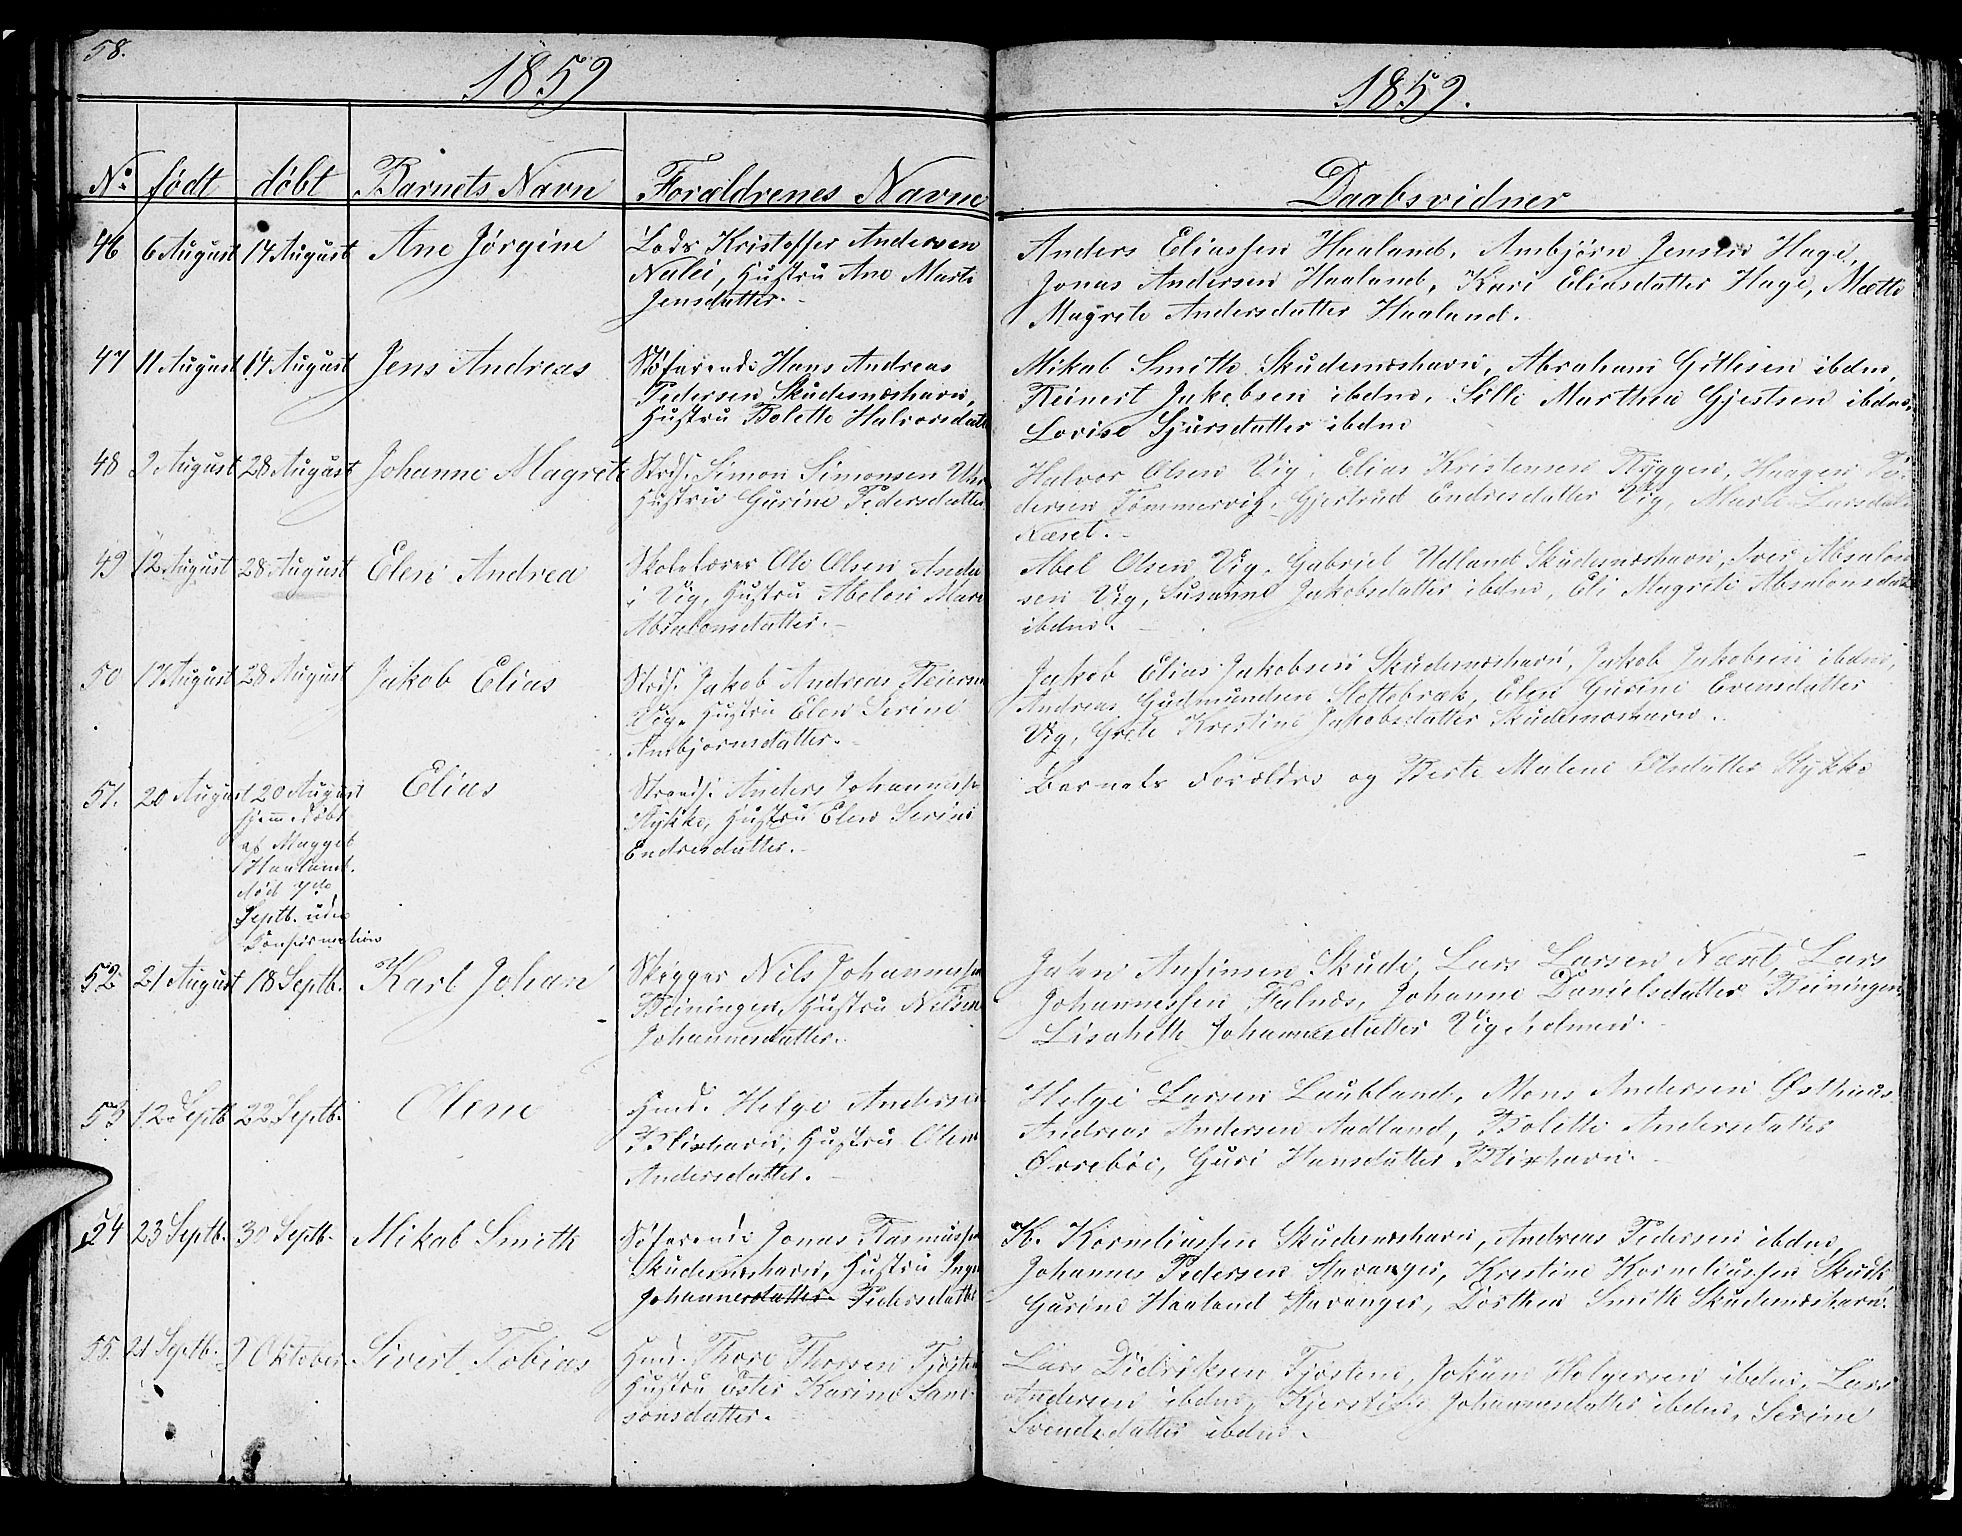 58.
1859
1859.
No. født døbt Barnets Navn Forældrenes Navne Daabsvidner
46 6 August 14 August Ane Jørgine
Lods Kristoffer Andersen
Hustru Ane Marte
Jensdatter.
Anders Eliassen Haaland, Ambjørn Jensen Hage,
Jonas Andersen Haaland, Kari Eliasdatter Hage, Mette
Magrete Andersdatter Haaland.
47 11 August 14 August Jens Andreas
Søfarende Hans Andreas
Pedersen Skudesnæshavn,
Hustru Bolette Halvorsdatt
Mikal Smith Skudesnæshavn, Abraham Gitlesen ibdm,
Reinert Jakobsen ibdm, Sille Marthea Gjertsen ibdm,
Lovise Sjursdatter ibdm
48 9 August 28 August Johanne Magrete
Strds. Simon Simonsen
Hustru Gurine Pedersdatter
Halvor Olsen Vig, Elias Kristensen Ryggen, Haagen Pe-
dersen Tømmervig, Gjertrud Endresdatter Vig, Marte Larsdat.
Næset.
49 12 August 28 August Elen Andrea
Skolelærer Ole Olsen
i Vig, Hustru Abelon Mari
Absalonsdatter.
Abel Olsen Vig, Gabriel Udland Skudesnæshavn, Iver Absalon
sen Vig, Susanne Jakobsdatter ibdm, Eli Magrete Absalonsdat
ibdm.
50 17 August 28 August Jakob Elias
Strds. Jakob Andreas
Vig, Hustru Elen Serine
Ambjørnsdatter.
Jakob Elias Jakobsen Skudesnæshavn, Jakob Jakobsen ibdm,
Andreas Gudmundsen Slettebræk, Elen Gurine Evensdatter
Vig, Grete Kristine Jakobsdatter Skudesnæshavn.
51. 20 August 20 August Elias
hjemmedøbt
af Maggel
Haaland.
død 7de
Septb. uden
Confirmation
Strands. Anders Johanness
Stykke, Hustru Elen Serine
Endresdatter.
Barnets Forældre og Berte Malene Olsdatter Stykke
52 21 August 18 Septb. Karl Johan
Skipper Nils Johannesse
Beiningen, Hustru Nilsin
Johannesdatter.
Jalen Ansinsen Skude, Lars Larsen Næset, Lars
Johannessen Falnæs, Johanne Danielsdatter Beiningen,
Lisabeth Johannesdatter Vigholmen.
53 12 Septb 22 Septb. Olene
Gmd. Helge Andersen
Blixhavn, Hustru Olene
Andersdatter.
Helge Larsen Laubland, Mons Andersen Østhuus
Andreas Andersen Aadland, Bolette Andersdatter
Ørebøe, Guri Hansdatter Blixhavn.
54 23 Septb. 30 Septb. Mikal Smith
Søfarende Jonas Rasmusse
Skudesnæshavn, Hustru Inge
Johannesdatter Pedersdatte
K. Korneliussen Skudesnæshavn, Andreas Pedersen ibdm,
Johannes Pedersen Stavanger, Kristine Korneliussen Skudt,
Gurine Haaland Stavanger, Dorthea Smith Skudesnæshavn.
55. 21 Septb. 9 Oktober Sivert Tobias
Gmd. Thore Thorsen Fjøsten
Hustru Ester Karine Sam
sonsdatter.
Lars Didriksen Fjøstene, Jokum Holgersen ibdm, Lars
Andersen ibdm, Kjerstine Johannesdatter ibdm, Serine
Svendsdatter ibdm.